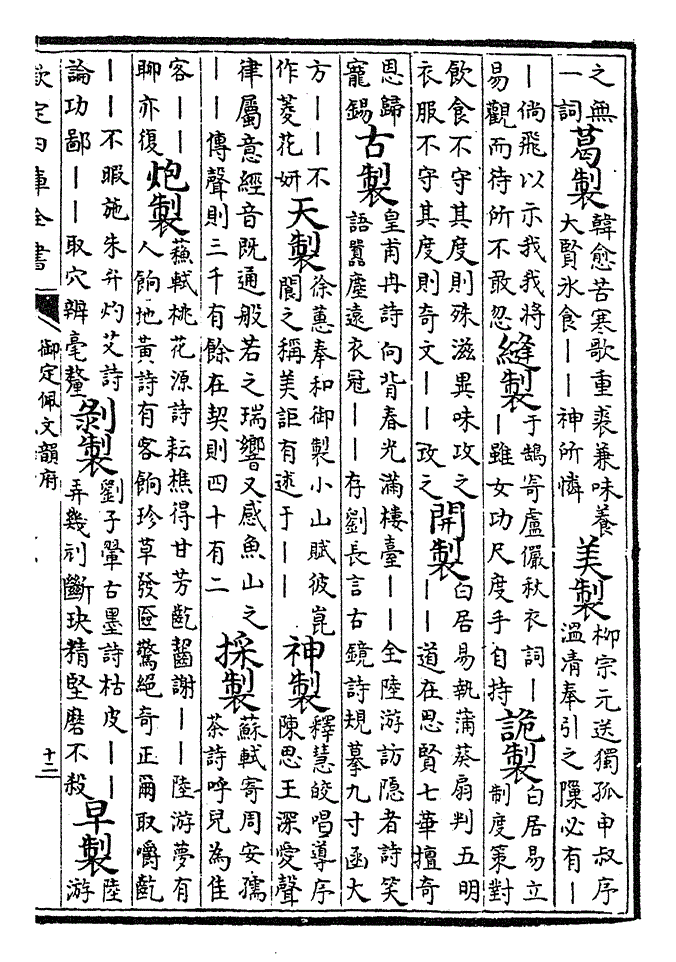 之無
一詞
葛製
韓愈苦寒歌重裘兼味養
大賢氷食——神所憐
美製
柳宗元送獨孤申叔序
溫清奉引之隟必有—
—倘飛以示我我將
易觀而待所不敢忽
縫製
于鵠寄盧儼秋衣詞—
—雖女功尺度手自持
詭製
白居易立
制度策對
飲食不守其度則殊滋異味攻之
衣服不守其度則奇文——攻之
開製
白居易執蒲葵扇判五明
——道在思賢七華擅奇
恩歸
寵錫
古製
皇甫冉詩向背春光滿樓臺——全陸游訪隐者詩笑
語囂塵遠衣冠——存劉長言古鏡詩規摹九寸函大
方——不
作菱花妍
天製
徐蕙奉和御製小山賦彼崑
閬之稱美詎有述于——
神製
釋慧皎唱導序
陳思王深愛聲
律屬意經音既通般若之瑞響又感魚山之
——傳聲則三千有餘在契則四十有二
採製
蘇軾寄周安孺
茶詩呼兒為佳
客——
聊亦復
炮製
蘓軾桃花源詩耘樵得甘芳齕齧謝——陸游夢有
人餉地黄詩有客餉珍草發匳驚絕奇正爾取嚼齕
——不暇施朱升灼艾詩
論功鄙——取穴辨毫釐
剝製
劉子翬古墨詩枯皮——
弄幾刓斷玦精堅磨不殺
早製
陸
游
欽定四庫全書
御定佩文韻府
十二